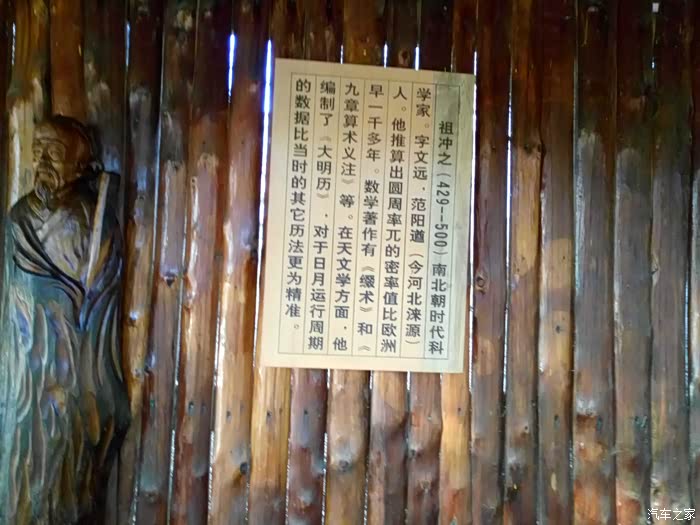 祖冲之（429--500）南北朝时代科
学家。字文远，范阳道（今河北涞源）
人。他推算出圆周率兀的密率值比欧洲
早一千多年。数学著作有《缀术》和《
九章算术义注》等。在天文学方面，他
编制了《大明历》，对于日月运行周期
的数据比当时的其它历法更为精准。
汽车之家